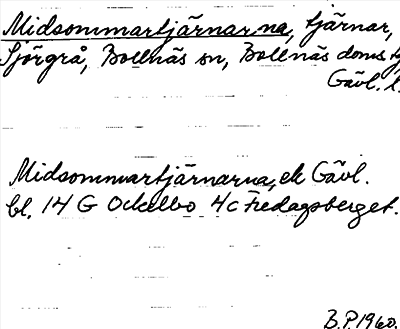 Midsommartjärnarna, tjärnar,
Sjörgrå, Bollnäs sn, Bollnäs doms
Gävl. l.
Midsommartjärnarna, ek Gävl.
bl. 14 G Ockelbo 4c Fredagsberget.
B.P. 1960.